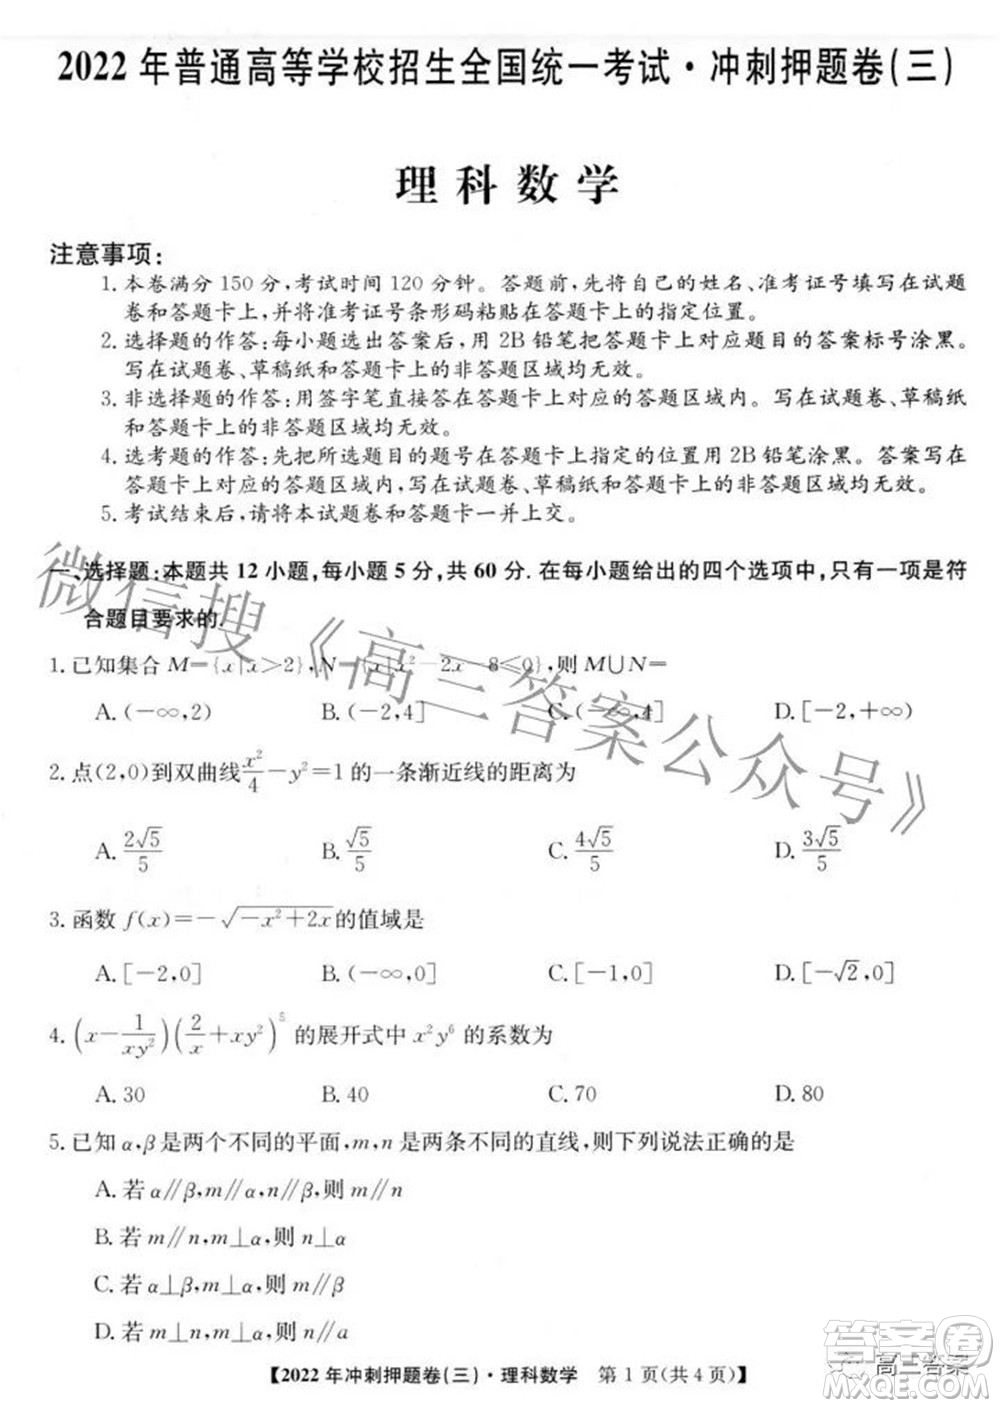 2022年普通高等学校招生全国统一考试·冲刺押题卷(三)
理科数学
注意事项:
1.本卷满分150分,考试时间120分钟。答题前,先将自己的姓名、准考证号填写在试题
卷和答题卡上,并将准考证号条形码粘贴在答题卡上的指定位置。
2.选择题的作答:每小题选出答案后,用2B铅笔把答题卡上对应题目的答案标号涂黑。
写在试题卷、草稿纸和答题卡上的非答题区域均无效。
3.非选择题的作答:用签字笔直接答在答题卡上对应的答题区域内。写在试题卷、草稿纸
和答题卡上的非答题区域均无效。
4.选考题的作答:先把所选题目的题号在答题卡上指定的位置用2B铅笔涂黑。答案写在
答题卡上对应的答题区域内,写在试题卷、草稿纸和答题卡上的非答题区域均无效。
5.考试结束后,请将本试题卷和答题卡一并上交。
一、选择题:本题共12小题,每小题5分,共60分.在每小题给出的四个选项中,只有一项是符
合题目要求的.
1.已知集合M={x|x>2},N={x|x²-2x-8≤0},则M∪N=
A.(-∞,2) B.(-2,4] C.(-∞,4] D.[-2,+∞)
2.点(2,0)到双曲线x²/4-y²=1的一条渐近线的距离为
A.2√5/5 B.√5/5 C.4√5/5 D.3√5/5
3.函数f(x)=-√(-x²+2x)的值域是
A.[-2,0] B.(-∞,0] C.[-1,0] D.[-√2,0]
4.(x-1/(xy²))(2/x+xy²)⁵的展开式中x²y⁶的系数为
A.30 B.40 C.70 D.80
5.已知α,β是两个不同的平面,m,n是两条不同的直线,则下列说法正确的是
A.若α∥β,m∥α,n∥β,则m∥n
B.若m∥n,m⊥α,则n⊥α
C.若α⊥β,m⊥α,则m∥β
D.若m⊥n,m⊥α,则n∥a
【2022年冲刺押题卷(三)·理科数学 第1页(共4页)】
微信搜《高三答案公众号》
高三答案
答案圈
MXQE.COM